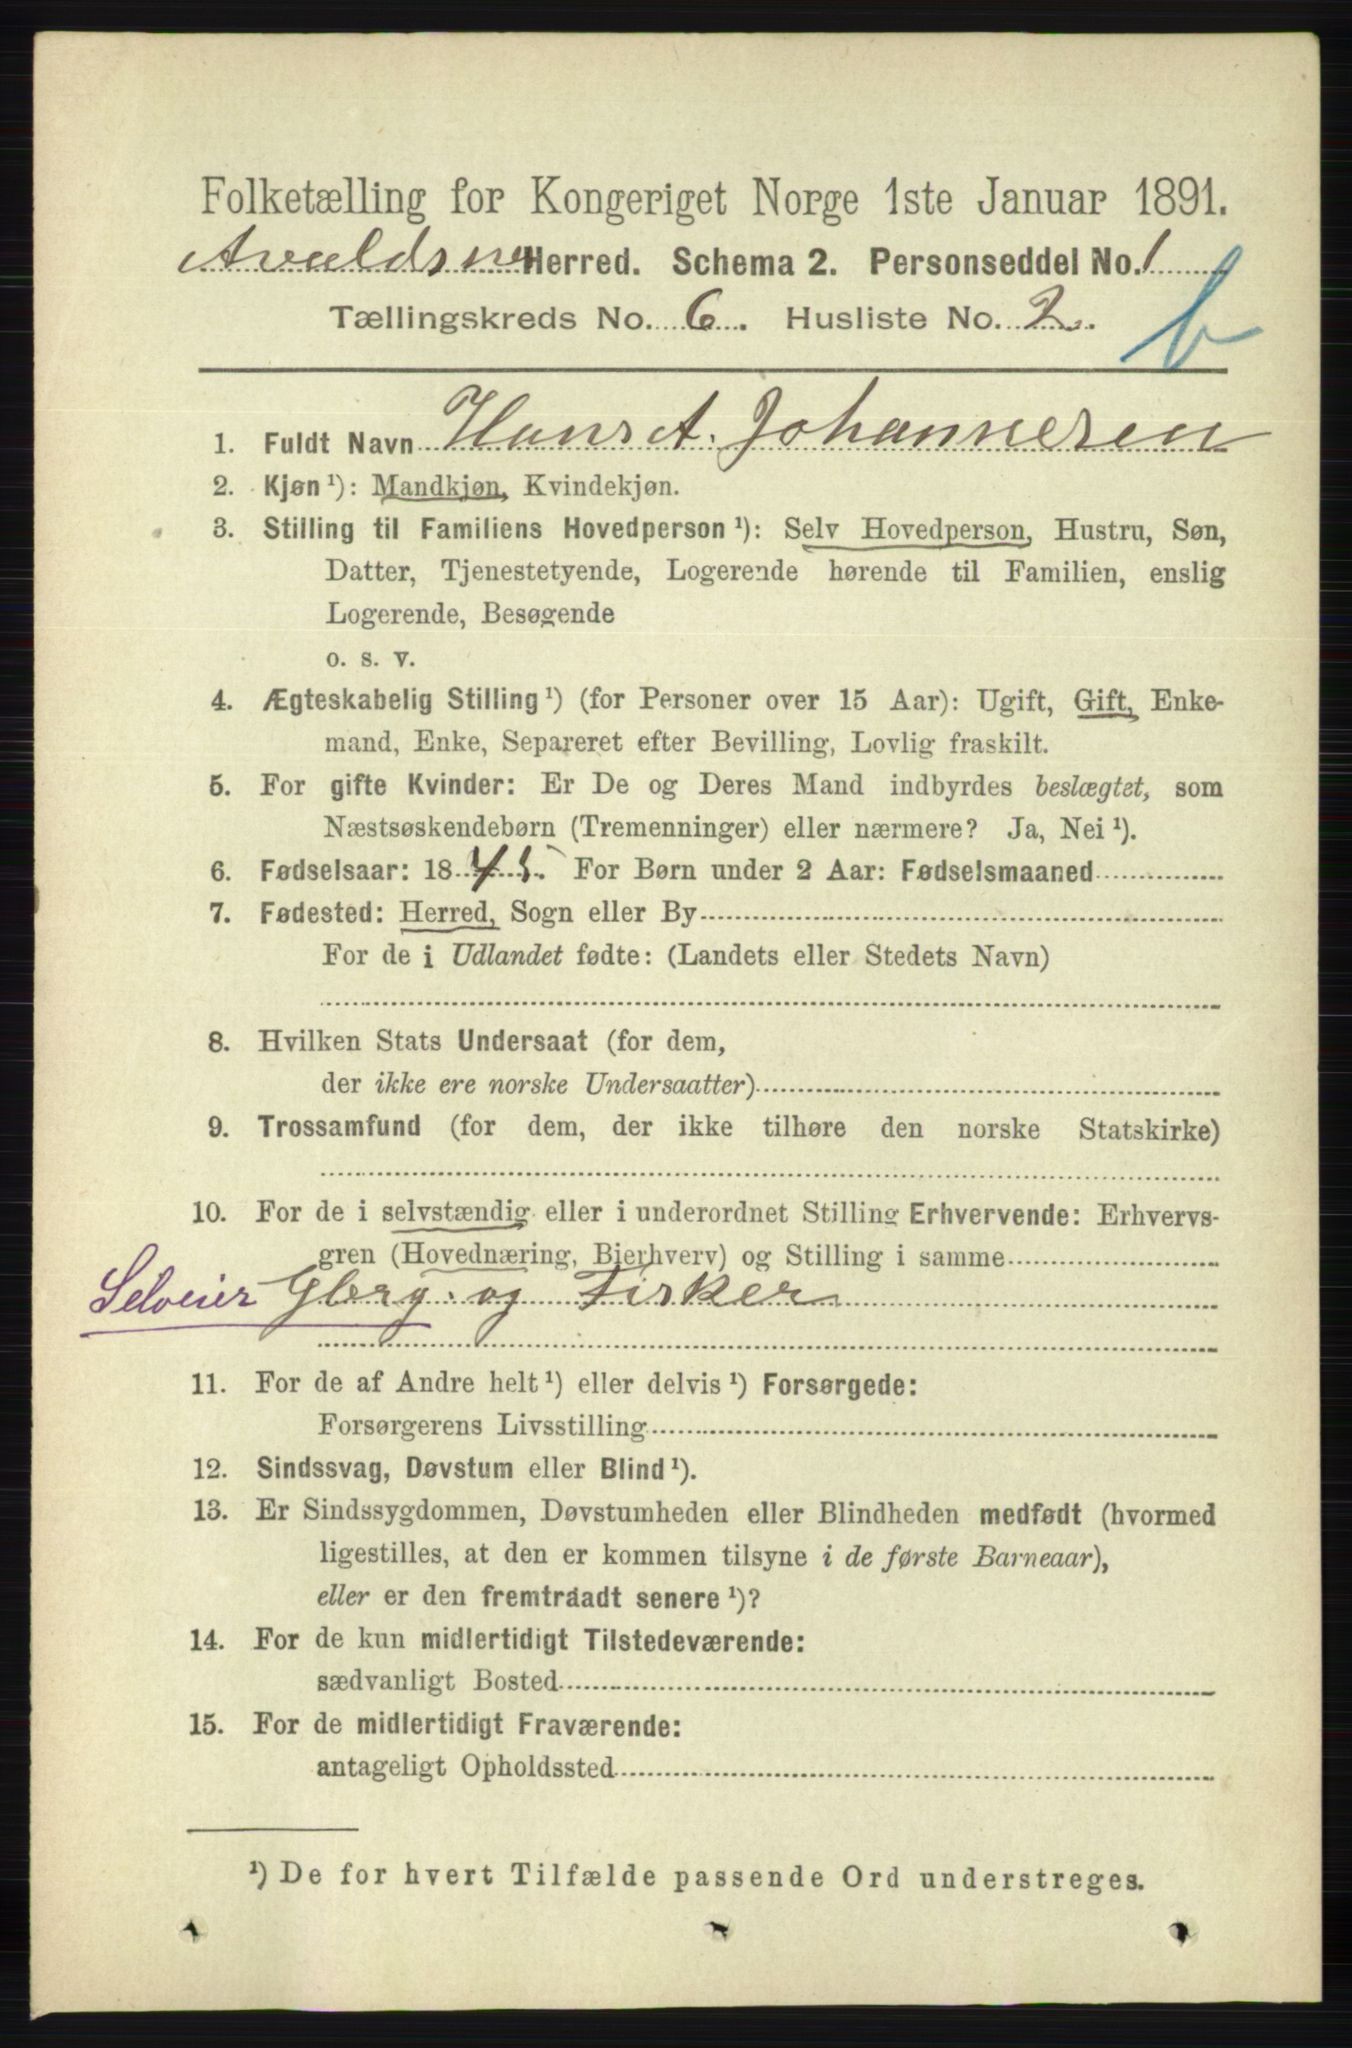 Folketælling for Kongeriget Norge 1ste Januar 1891.
Avaldsnes Herred. Schema 2. Personseddel No. 1
Tællingskreds No. 6. Husliste No. 2.
b
1. Fuldt Navn Hans A. Johannesen
2. Kjøn ¹): Mandkjøn, Kvindekjøn.
3. Stilling til Familiens Hovedperson ¹): Selv Hovedperson, Hustru, Søn,
Datter, Tjenestetyende, Logerende hørende til Familien, enslig
Logerende, Besøgende
o. s. v.
4. Ægteskabelig Stilling ¹) (for Personer over 15 Aar): Ugift, Gift, Enke-
mand, Enke, Separeret efter Bevilling, Lovlig fraskilt.
5. For gifte Kvinder: Er De og Deres Mand indbyrdes beslægtet, som
Næstsøskendebørn (Tremenninger) eller nærmere? Ja, Nei ¹).
6. Fødselsaar: 1845. For Børn under 2 Aar: Fødselsmaaned
7. Fødested: Herred, Sogn eller By
For de i Udlandet fødte: (Landets eller Stedets Navn)
8. Hvilken Stats Undersaat (for dem,
der ikke ere norske Undersaatter)
9. Trossamfund (for dem, der ikke tilhøre den norske Statskirke)
10. For de i selvstændig eller i underordnet Stilling Erhvervende: Erhvervs-
gren (Hovednæring, Bierhverv) og Stilling i samme
Selveier Gbrg. og Fisker
11. For de af Andre helt ¹) eller delvis ¹) Forsørgede:
Forsørgerens Livsstilling
12. Sindssvag, Døvstum eller Blind ¹).
13. Er Sindssygdommen, Døvstumheden eller Blindheden medfødt (hvormed
ligestilles, at den er kommen tilsyne i de første Barneaar),
eller er den fremtraadt senere ¹)?
14. For de kun midlertidigt Tilstedeværende:
sædvanligt Bosted
15. For de midlertidigt Fraværende:
antageligt Opholdssted
¹) De for hvert Tilfælde passende Ord understreges.